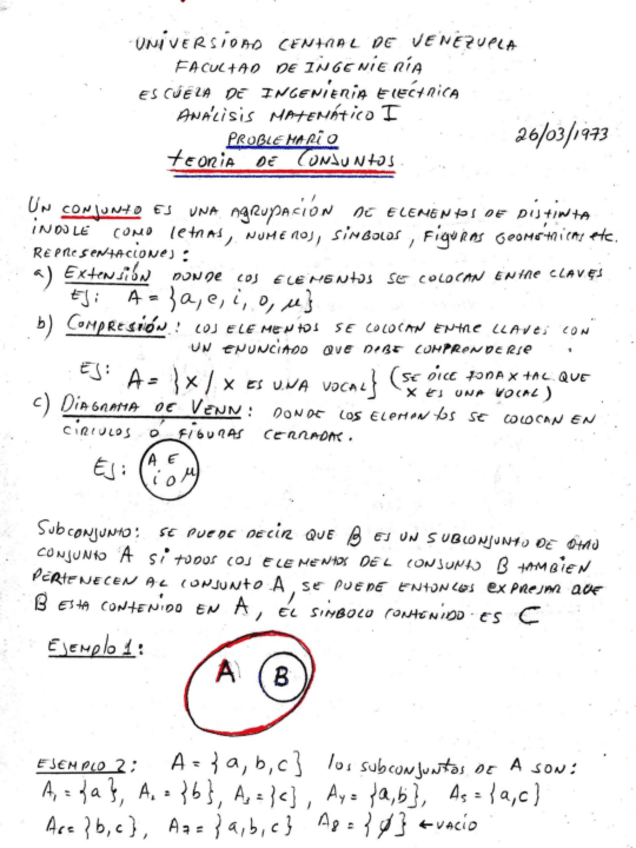 UNIVERSIDAD CENTRAL DE VENEZUELA
FACULTAD DE INGENIERÍA
ESCUELA DE INGENIERÍA ELÉCTRICA
ANÁLISIS MATEMÁTICO I
PROBLEMARIO
26/03/1973
TEORIA DE CONJUNTOS
UN CONJUNTO ES UNA AGRUPACIÓN DE ELEMENTOS DE DISTINTA
INDOLE COMO LETRAS, NUMEROS, SIMBOLOS, FIGURAS GEOMÉTRICAS etc.
REPRESENTACIONES:
a) EXTENSIÓN DONDE LOS ELEMENTOS SE COLOCAN ENTRE CLAVES
EJ: A = {a, e, i, o, u}
b) COMPRESIÓN: LOS ELEMENTOS SE COLOCAN ENTRE LLAVES CON
UN ENUNCIADO QUE DEBE COMPRENDERSE
EJ: A = {X / X ES UNA VOCAL} (SE DICE TODA X TAL QUE
X ES UNA VOCAL)
c) DIAGRAMA DE VENN: DONDE LOS ELEMENTOS SE COLOCAN EN
CIRCULOS Ó FIGURAS CERRADAS.
EJ: A E
i O U
SUBCONJUNTO: SE PUEDE DECIR QUE B ES UN SUBCONJUNTO DE OTRO
CONJUNTO A SI TODOS LOS ELEMENTOS DEL CONJUNTO B TAMBIEN
PERTENECEN AL CONJUNTO A, SE PUEDE ENTONCES EXPRESAR QUE
B ESTA CONTENIDO EN A, EL SIMBOLO CONTENIDO ES C
EJEMPLO 1:
A B
EJEMPLO 2: A = {a, b, c} los subconjuntos DE A SON:
A₁ = {a}, A₂ = {b}, A₃ = {c}, A₄ = {a,b}, A₅ = {a,c}
A₆ = {b,c}, A₇ = {a,b,c} A₈ = {∅} ← VACIO